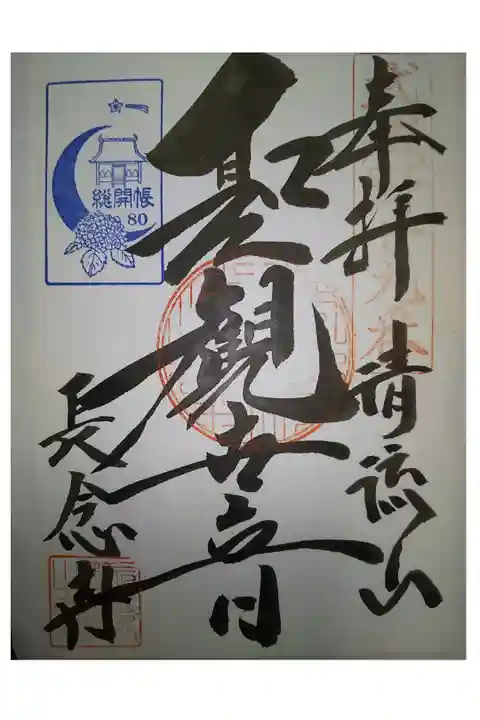 奉拝 清流山
聖観世音
長念寺
総開帳
80